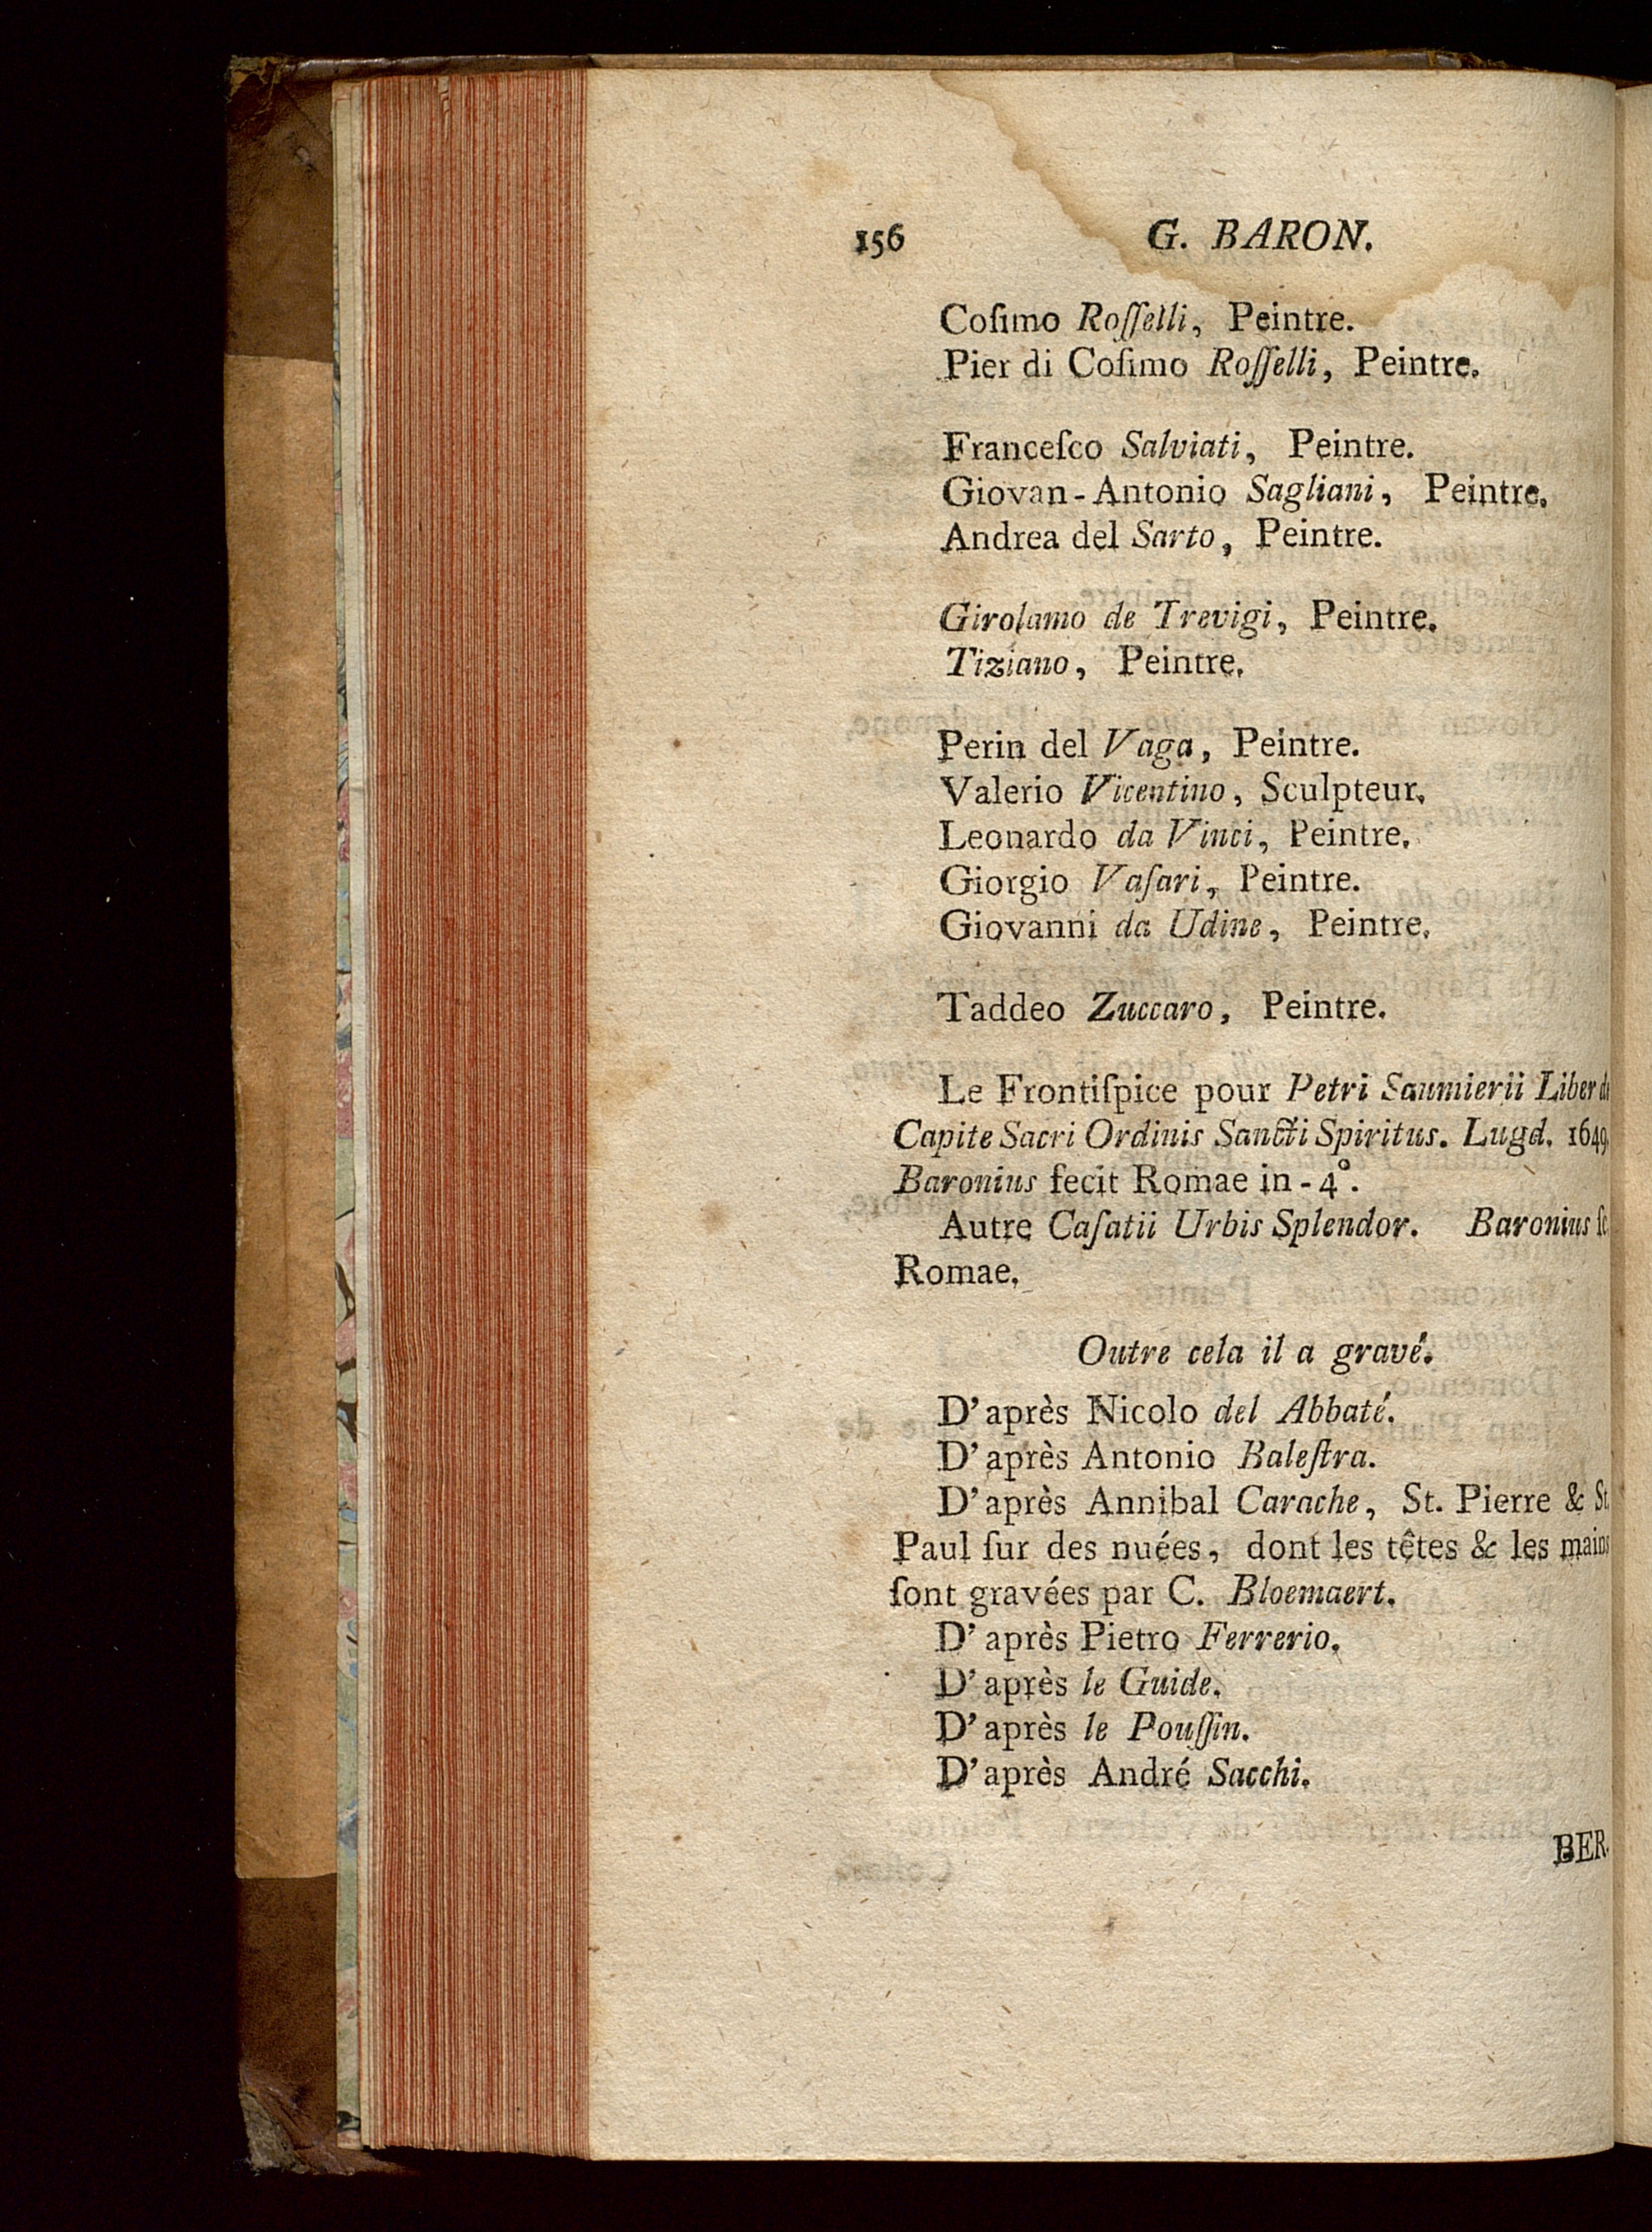 156 G. BARON.
Coſimo Roſſelli, Peintre.
Pier di Coſimo Roſſelli, Peintre.
Franceſco Salviati, Peintre.
Giovan-Antonio Sagliani, Peintre.
Andrea del Sarto, Peintre.
Girolamo de Trevigi, Peintre.
Tiziano, Peintre.
Perin del Vaga, Peintre.
Valerio Vicentino, Sculpteur.
Leonardo da Vinci, Peintre.
Giorgio Vaſari, Peintre.
Giovanni da Udine, Peintre.
Taddeo Zuccaro, Peintre.
Le Frontiſpice pour Petri Saumierii Liber
Capite Sacri Ordinis Sancti Spiritus. Lugd. 1649.
Baronius fecit Romae in-4°.
Autre Caſatii Urbis Splendor. Baronius
Romae.
Outre cela il a gravé.
D'après Nicolo del Abbaté.
D'après Antonio Baleſtra.
D'après Annibal Carache, St. Pierre & St.
Paul ſur des nuées, dont les têtes & les mains
ſont gravées par C. Bloemaert.
D'après Pietro Ferrerio.
D'après le Guide.
D'après le Pouſſin.
D'après André Sacchi.
BER-